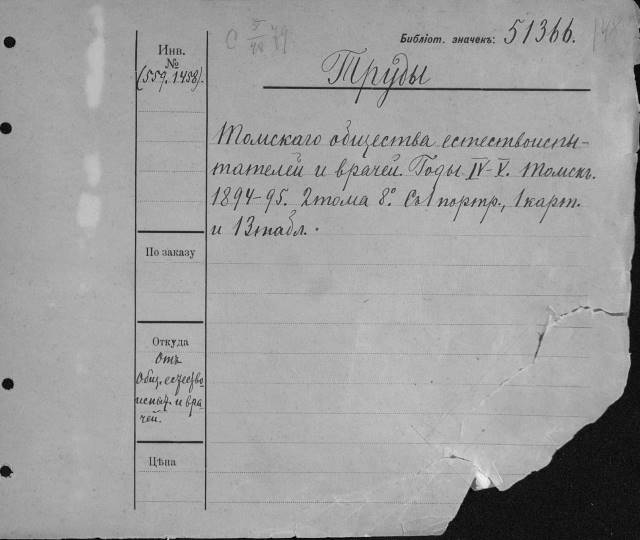 Библіот. значекъ: 51366.
Инв.
№
(559.1458).
Труды
Томскаго общества естествоиспы-
тателей и врачей. Годы IV-V. Томскъ.
1894-95. 2 тома 8°. Съ 1 портр., 1 карт.
и 13 табл.
По заказу
Откуда
Отъ
Общ. естество-
испыт. и вра-
чей.
Цѣна